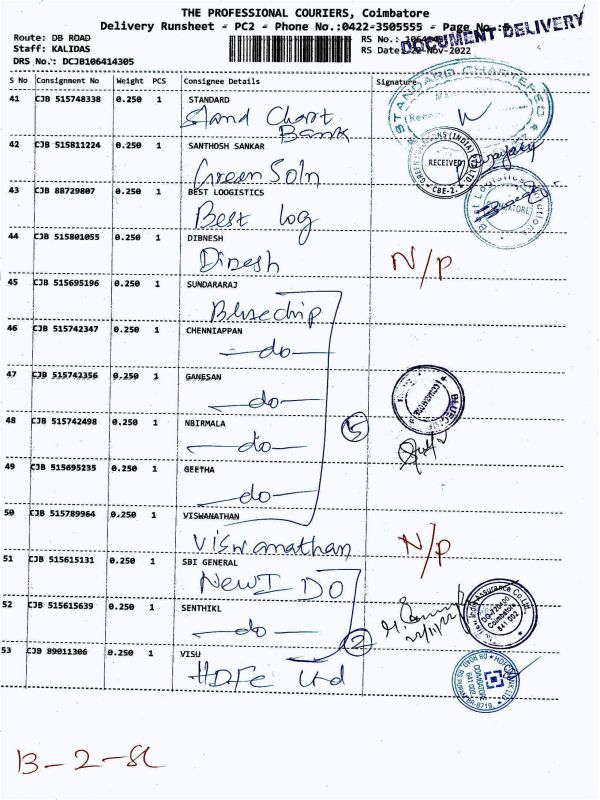 THE PROFESSIONAL COURIERS, Coimbatore
Delivery Runsheet - PC2 - Phone No.:0422-3505555 - Page No.:
DOCUMENT DELIVERY
Route: DB ROAD
RS No.:
Staff: KALIDAS
RS Date: 22-Nov-2022
DRS No.: DCJB106414305
S No Consignment No Weight PCS Consignee Details Signature
41 CJB 515748338 0.250 1 STANDARD
Stand Chart
Bank
STANDARD CHARTERED
42 CJB 515811224 0.250 1 SANTHOSH SANKAR
Green Soln
RECEIVED
CBE-2
43 CJB 88729807 0.250 1 BEST LOOGISTICS
Best log
44 CJB 515801055 0.250 1 DIBNESH
Dinesh
N/P
45 CJB 515695196 0.250 1 SUNDARARAJ
Bluechip
46 CJB 515742347 0.250 1 CHENNIAPPAN
do
47 CJB 515742356 0.250 1 GANESAN
do
48 CJB 515742498 0.250 1 NBIRMALA
do
5
49 CJB 515695235 0.250 1 GEETHA
do
50 CJB 515789964 0.250 1 VISWANATHAN
Viswanathan
N/P
51 CJB 515615131 0.250 1 SBI GENERAL
New I DO
52 CJB 515615639 0.250 1 SENTHIKL
do
2
22/11/22
India Assurance Co.Ltd.
DO-720400
Coimbatore
641 002
53 CJB 89011306 0.250 1 VISU
HDFC Ltd
COIMBATORE
641 002
13-2-SL